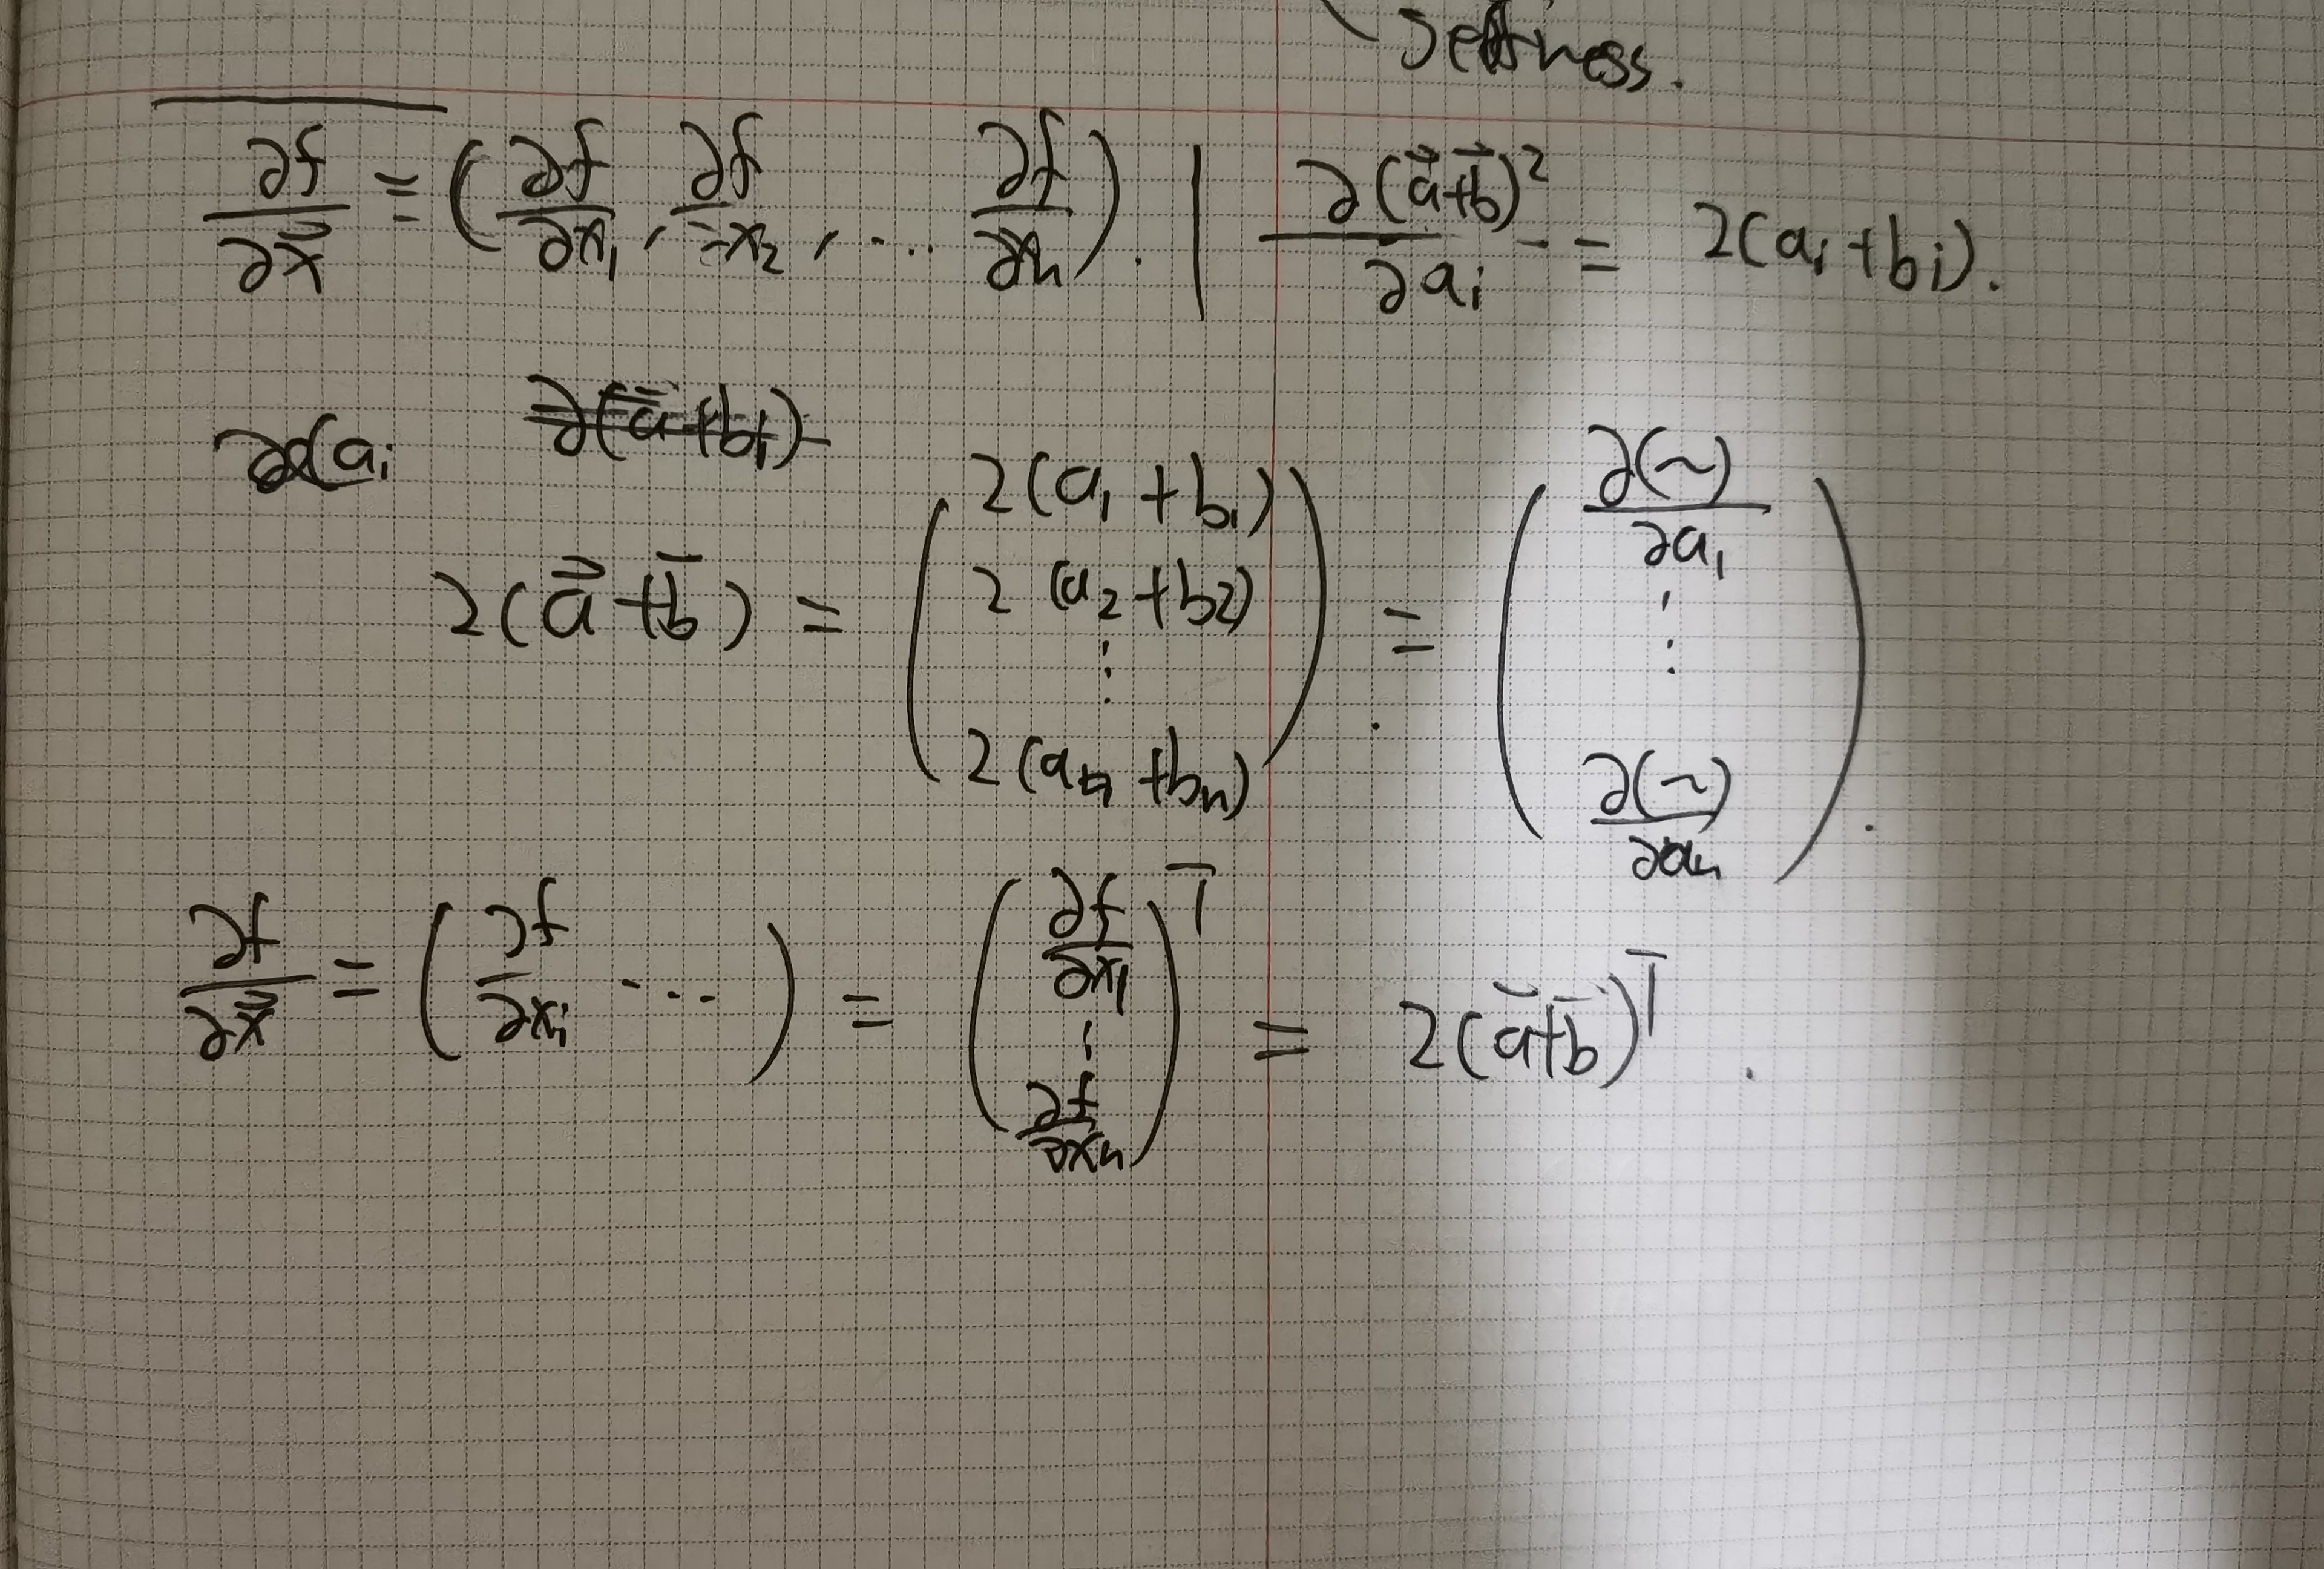 ∂f/∂x⃗ = (∂f/∂x₁, ∂f/∂x₂, ... ∂f/∂xₙ). | ∂(a⃗+b⃗)²/∂aᵢ = 2(aᵢ+bᵢ).
2(a⃗+b⃗) = (2(a₁+b₁) 2(a₂+b₂) ⋮ 2(aₙ+bₙ)). = (∂(~)/∂a₁ ⋮ ∂(~)/∂aₙ).
∂f/∂x⃗ = (∂f/∂xᵢ ...) = (∂f/∂x₁ ⋮ ∂f/∂xₙ)ᵀ = 2(a⃗+b⃗)ᵀ.